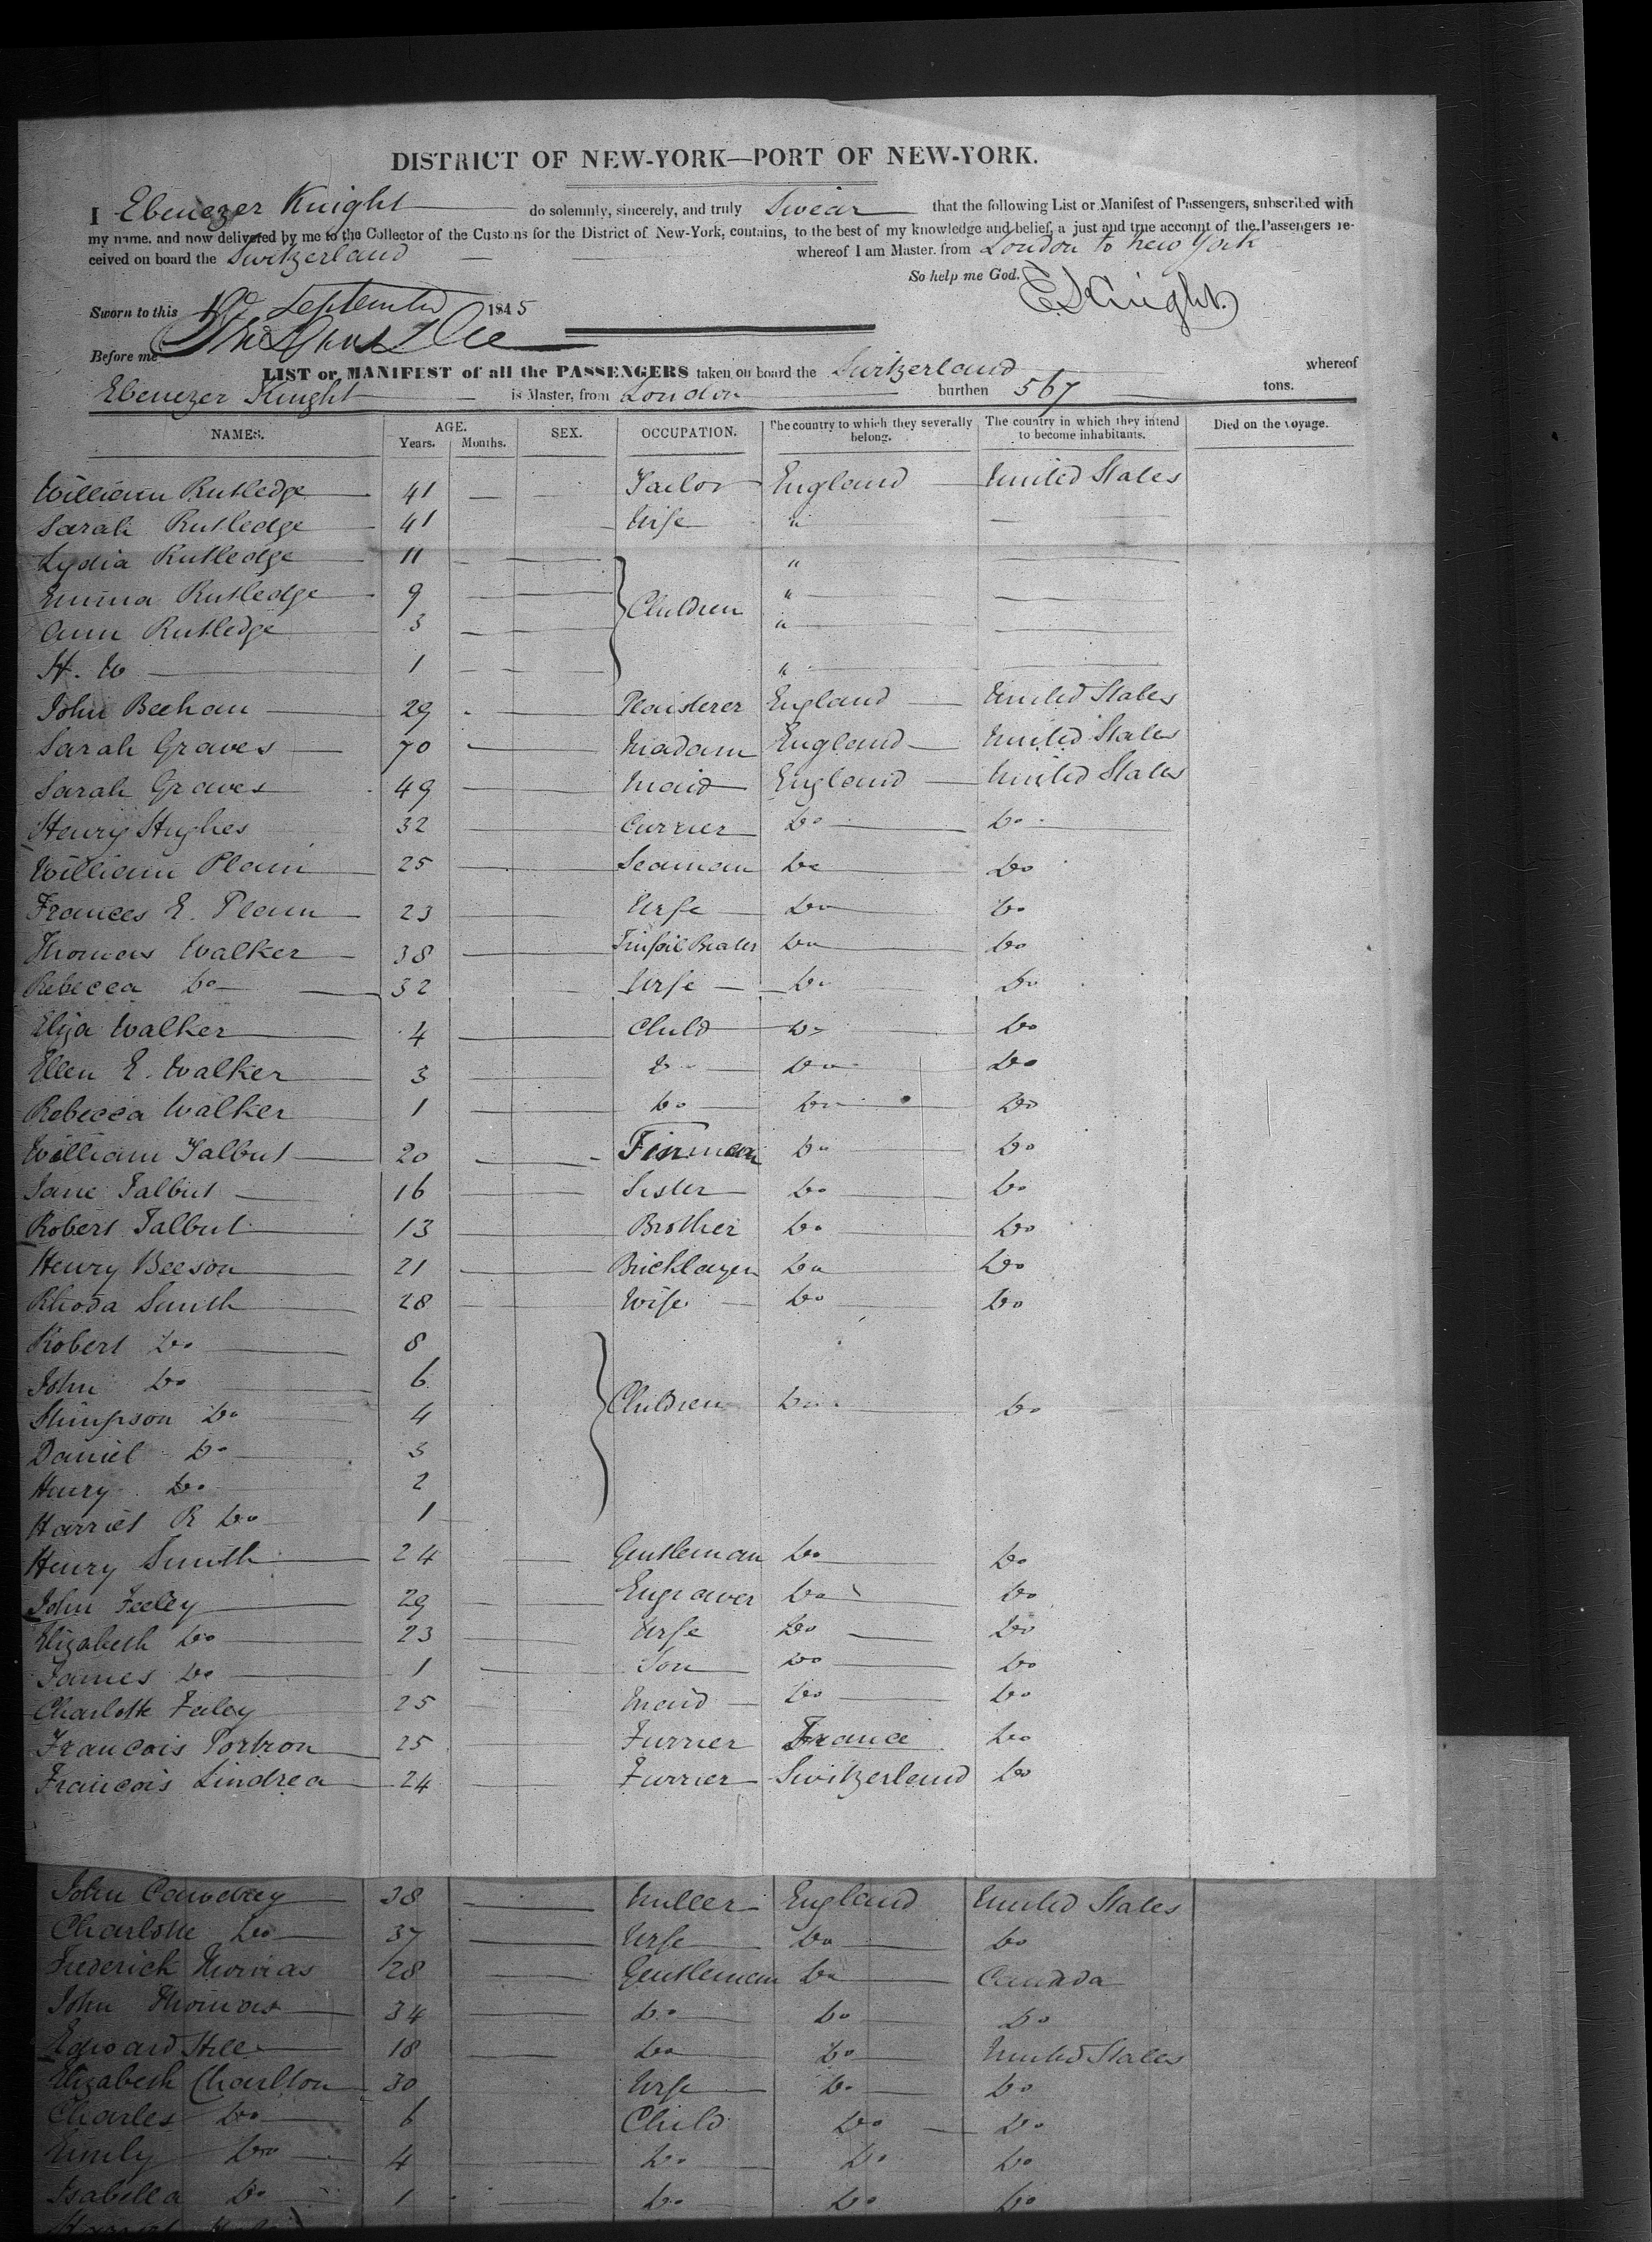 DISTRICT OF NEW-YORK—PORT OF NEW-YORK.
I Ebenezer Knight do solemnly, sincerely, and truly Swear that the following List or Manifest of Passengers, subscribed with
my name, and now delivered by me to the Collector of the Customs for the District of New-York, contains, to the best of my knowledge and belief, a just and true account of the Passengers re-
ceived on board the Switzerland whereof I am Master, from London to New York
So help me God. E Knight
Sworn to this September 1845
Before me
LIST or MANIFEST of all the PASSENGERS taken on board the Switzerland whereof
Ebenezer Knight is Master, from London burthen 567 tons.
NAMES. AGE. Years. Months. SEX. OCCUPATION. The country to which they severally belong. The country in which they intend to become inhabitants. Died on the voyage.
William Rutledge 41 Tailor England United States
Sarah Rutledge 41 Wife "
Lydia Rutledge 11 "
Emma Rutledge 9 Children "
Ann Rutledge 3 "
H. W 1 "
John Beehan 29 Plaisterer England United States
Sarah Graves 70 Madam England United States
Sarah Graves 49 Maid England United States
Henry Hughes 32 Currier Do Do
William Plain 25 Seaman Do Do
Frances E. Plain 23 Wife Do Do
Thomas Walker 38 Tinfoil Beater Do Do
Rebecca Do 32 Wife Do Do
Eliza Walker 4 Child Do Do
Ellen E. Walker 3 Do Do Do
Rebecca Walker 1 Do Do Do
William Talbut 20 Do Do
Jane Talbut 16 Sister Do Do
Robert Talbut 13 Brother Do Do
Henry Beeson 21 Bricklayer Do Do
Rhoda Smith 28 Wife Do Do
Robert Do 8
John Do 6
Shimpson Do 4 Children Do Do
Daniel Do 3
Henry Do 2
Harriet R Do 1
Henry Smith 24 Gentleman Do Do
John Feeley 29 Engraver Do Do
Elizabeth Do 23 Wife Do Do
James Do 1 Son Do Do
Charlotte Feley 25 Maid Do Do
Francois Portron 25 Furrier France Do
Francois Lindrea 24 Furrier Switzerland Do
John Cawdrey 38 Miller England United States
Charlotte Do 37 Wife Do Do
Frederick Thomas 28 Gentleman Do Canada
John Thomas 34 Do Do Do
Edward Hill 18 Do Do United States
Elizabeth Charlton 30 Wife Do Do
Charles Do 6 Child Do Do
Emily Do 4 Do Do Do
Isabella Do 1 Do Do Do